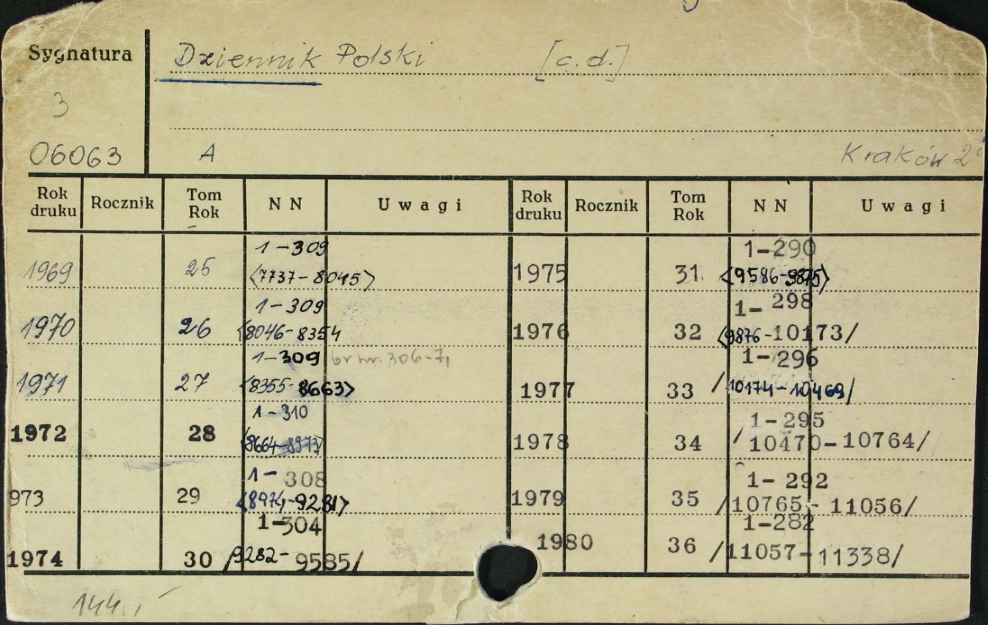 Sygnatura Dziennik Polski [c.d.]
3
06063 A Kraków 2°
Rok druku Rocznik Tom Rok NN Uwagi Rok druku Rocznik Tom Rok NN Uwagi
1969 25 1-309 <7737-8045> 1975 31 1-290 <9586-9875>
1970 26 1-309 <8046-8354 1976 32 1-298 <9876-10173/
1971 27 1-309 br nr. 306-7, <8355-8663> 1977 33 1-296 /10174-10469/
1972 28 1-310 <8664-8973> 1978 34 1-295 /10470-10764/
973 29 1-308 <8974-9281> 1979 35 1-292 /10765-11056/
1974 30 1-304 /9282-9585/ 1980 36 1-282 /11057-11338/
144.